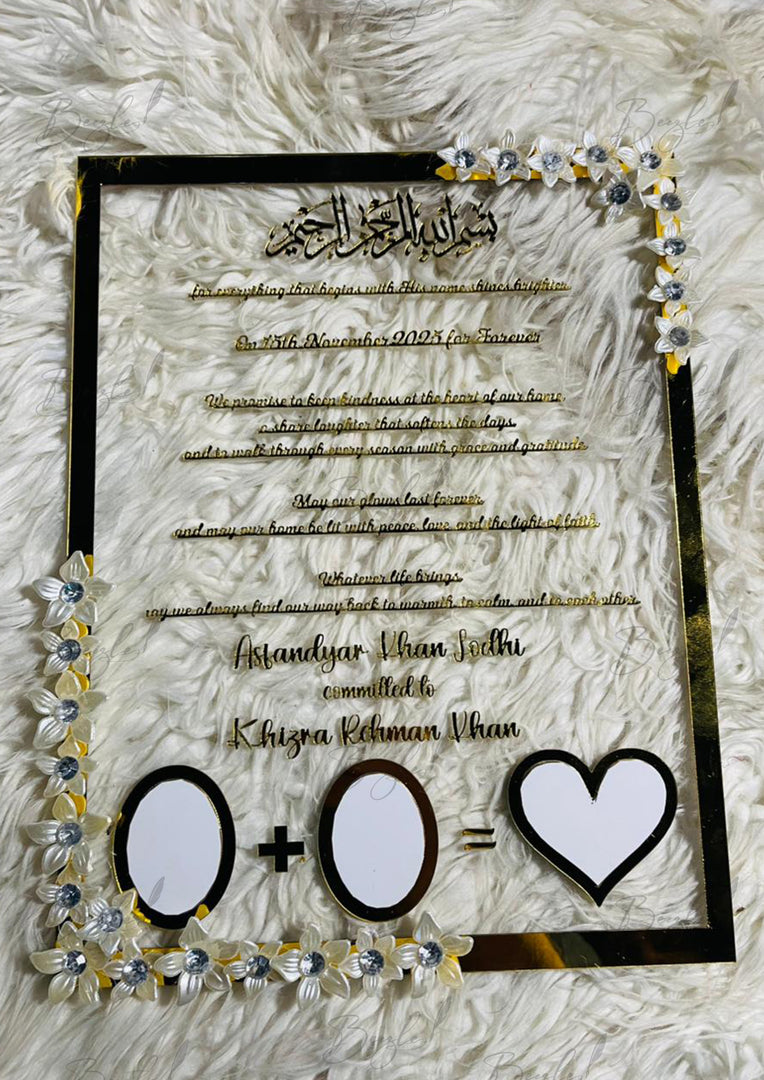 بسم الله الرحمن الرحيم
for everything that begins with His name shines brighter
On 15th November 2025 for Forever
We promise to keep kindness at the heart of our home,
to share laughter that softens the days,
and to walk through every season with grace and gratitude.
May our glows last forever
and may our home be lit with peace, love, and the light of faith.
Whatever life brings,
may we always find our way back to warmth, to calm, and to each other.
Asfandyar Khan Lodhi
committed to
Khizra Rehman Khan
+ =
Beezles!